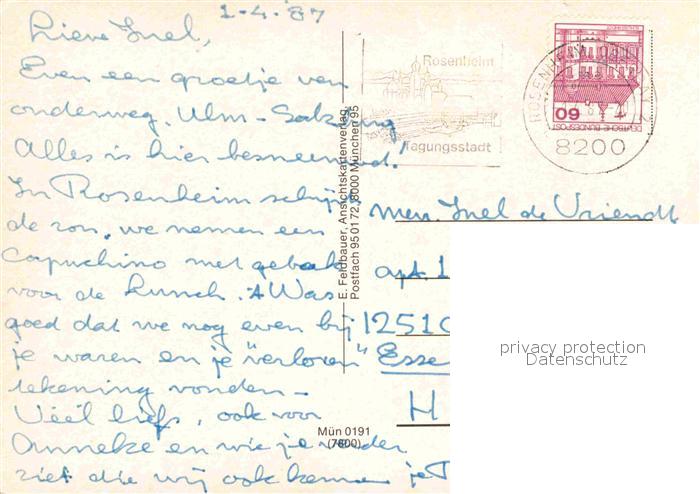 1-4-'87
Lieve Inel,
Even een groetje van
onderweg. Ulm - Salzburg
Alles is hier besneeuwd!
In Rosenheim schijnt
de zon, we nemen een
Capuchino met gebak
voor de Lunch. Was
goed dat we nog even bij
je waren en je "verloren"
rekening vonden -
Veel liefs, ook voor
Anneke en wie je verder
ziet die wij ook kennen je
Rosenheim
Tagungsstadt
ROSENHEIM
8200
60
DEUTSCHE BUNDESPOST
E. Feldbauer, Ansichtskartenverlag,
Postfach 95 01 72, 8000 München 95
Mün 0191
(7800)
Mevr. Inel de Vriendt
apt. 1
1251
Esse
H
privacy protection
Datenschutz